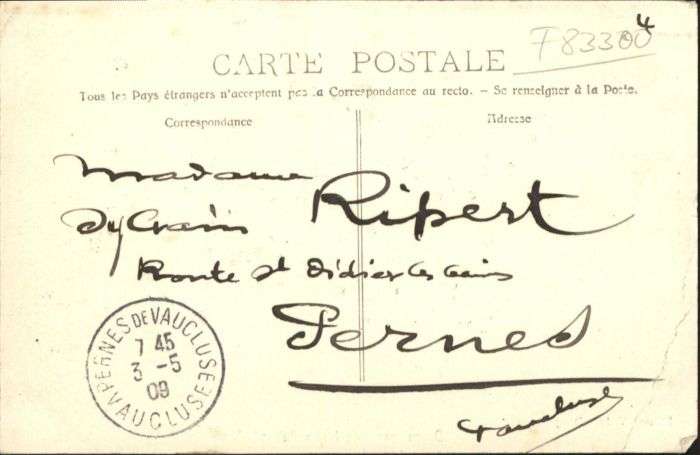 F83300
4
CARTE POSTALE
Tous les Pays étrangers n'acceptent pas la Correspondance au recto. - Se renseigner à la Poste.
Correspondance
Adresse
Madame
Sylvain Ripert
Route St Didier les bains
Pernes
Vaucluse
PERNES DE VAUCLUSE
7 45
3 - 5
09
VAUCLUSE